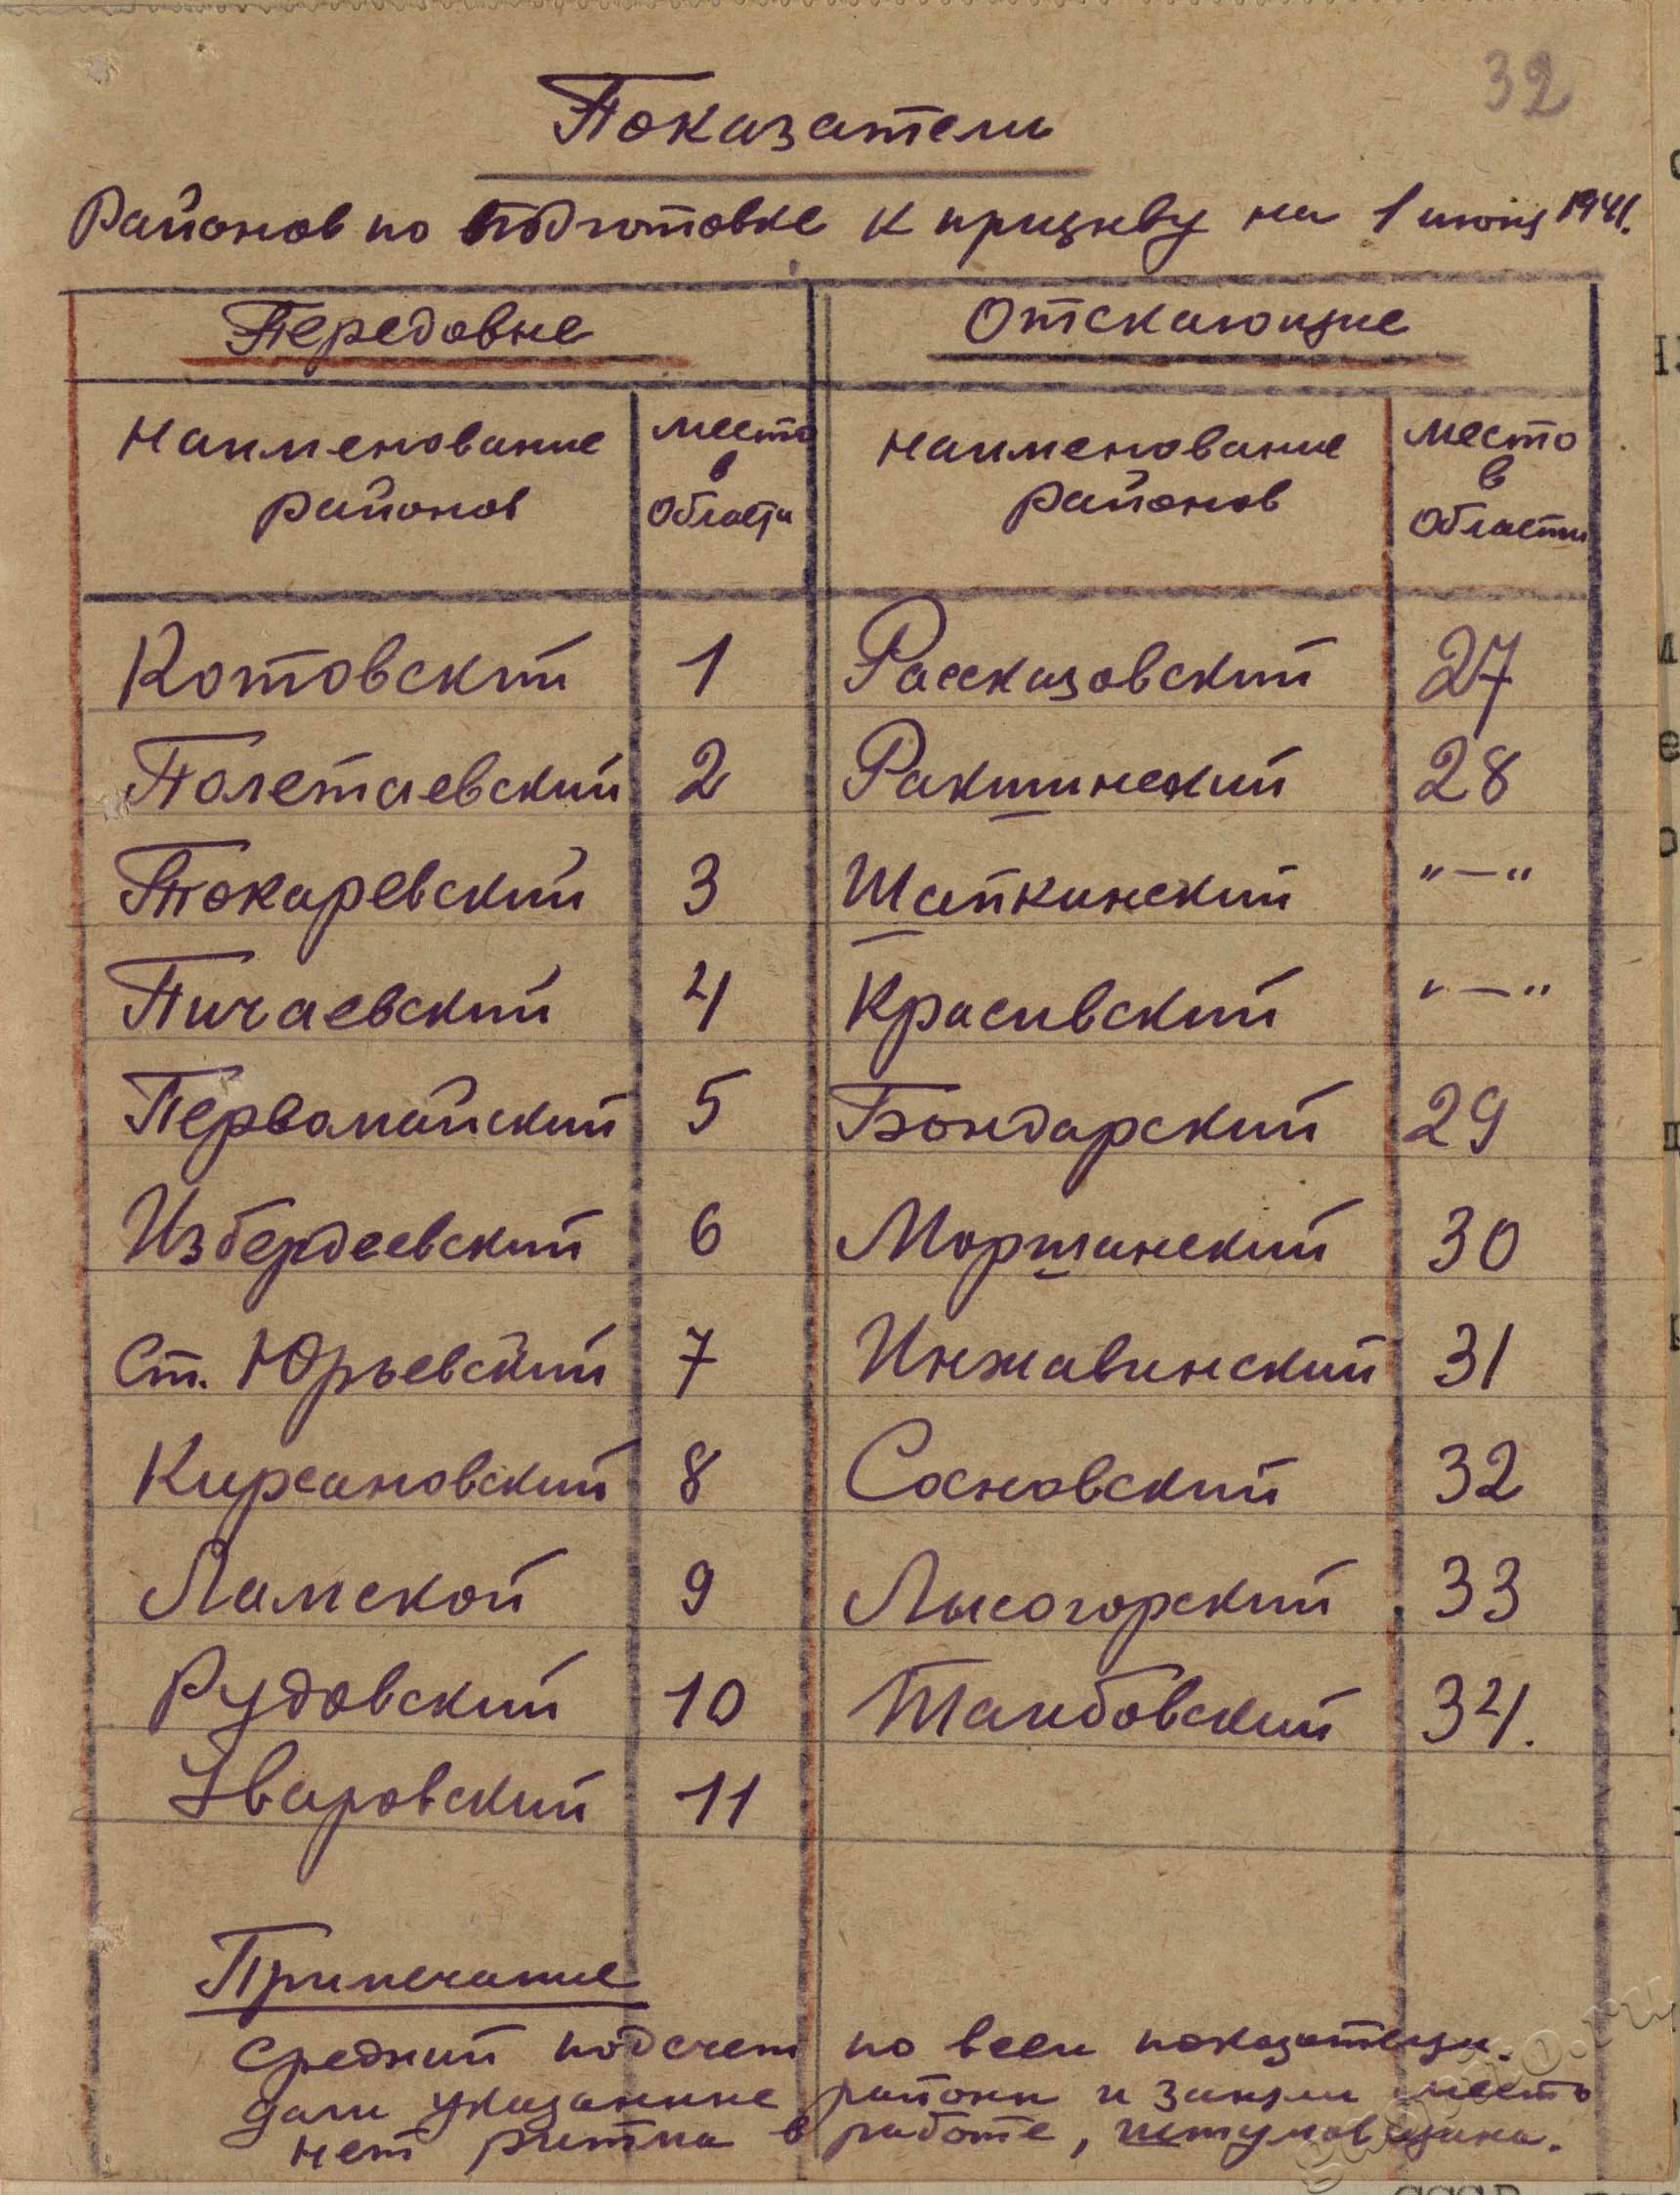 32
Показатели
Районов по подготовке к призыву на 1 июня 1941.
Передовые Отстающие
Наименование районов место в области Наименование районов место в области
Котовский 1 Рассказовский 27
Полетаевский 2 Ракшинский 28
Токаревский 3 Шапкинский "—"
Пичаевский 4 Красивский "—"
Первомайский 5 Бондарский 29
Избердеевский 6 Моршанский 30
Ст. Юрьевский 7 Инжавинский 31
Кирсановский 8 Сосновский 32
Ламской 9 Лысогорский 33
Рудовский 10 Тамбовский 34.
Уваровский 11
Примечание
Средний подсчет по всем показателям.
дали указанные районы и заняли место
нет ритма в работе, штурмовщина.